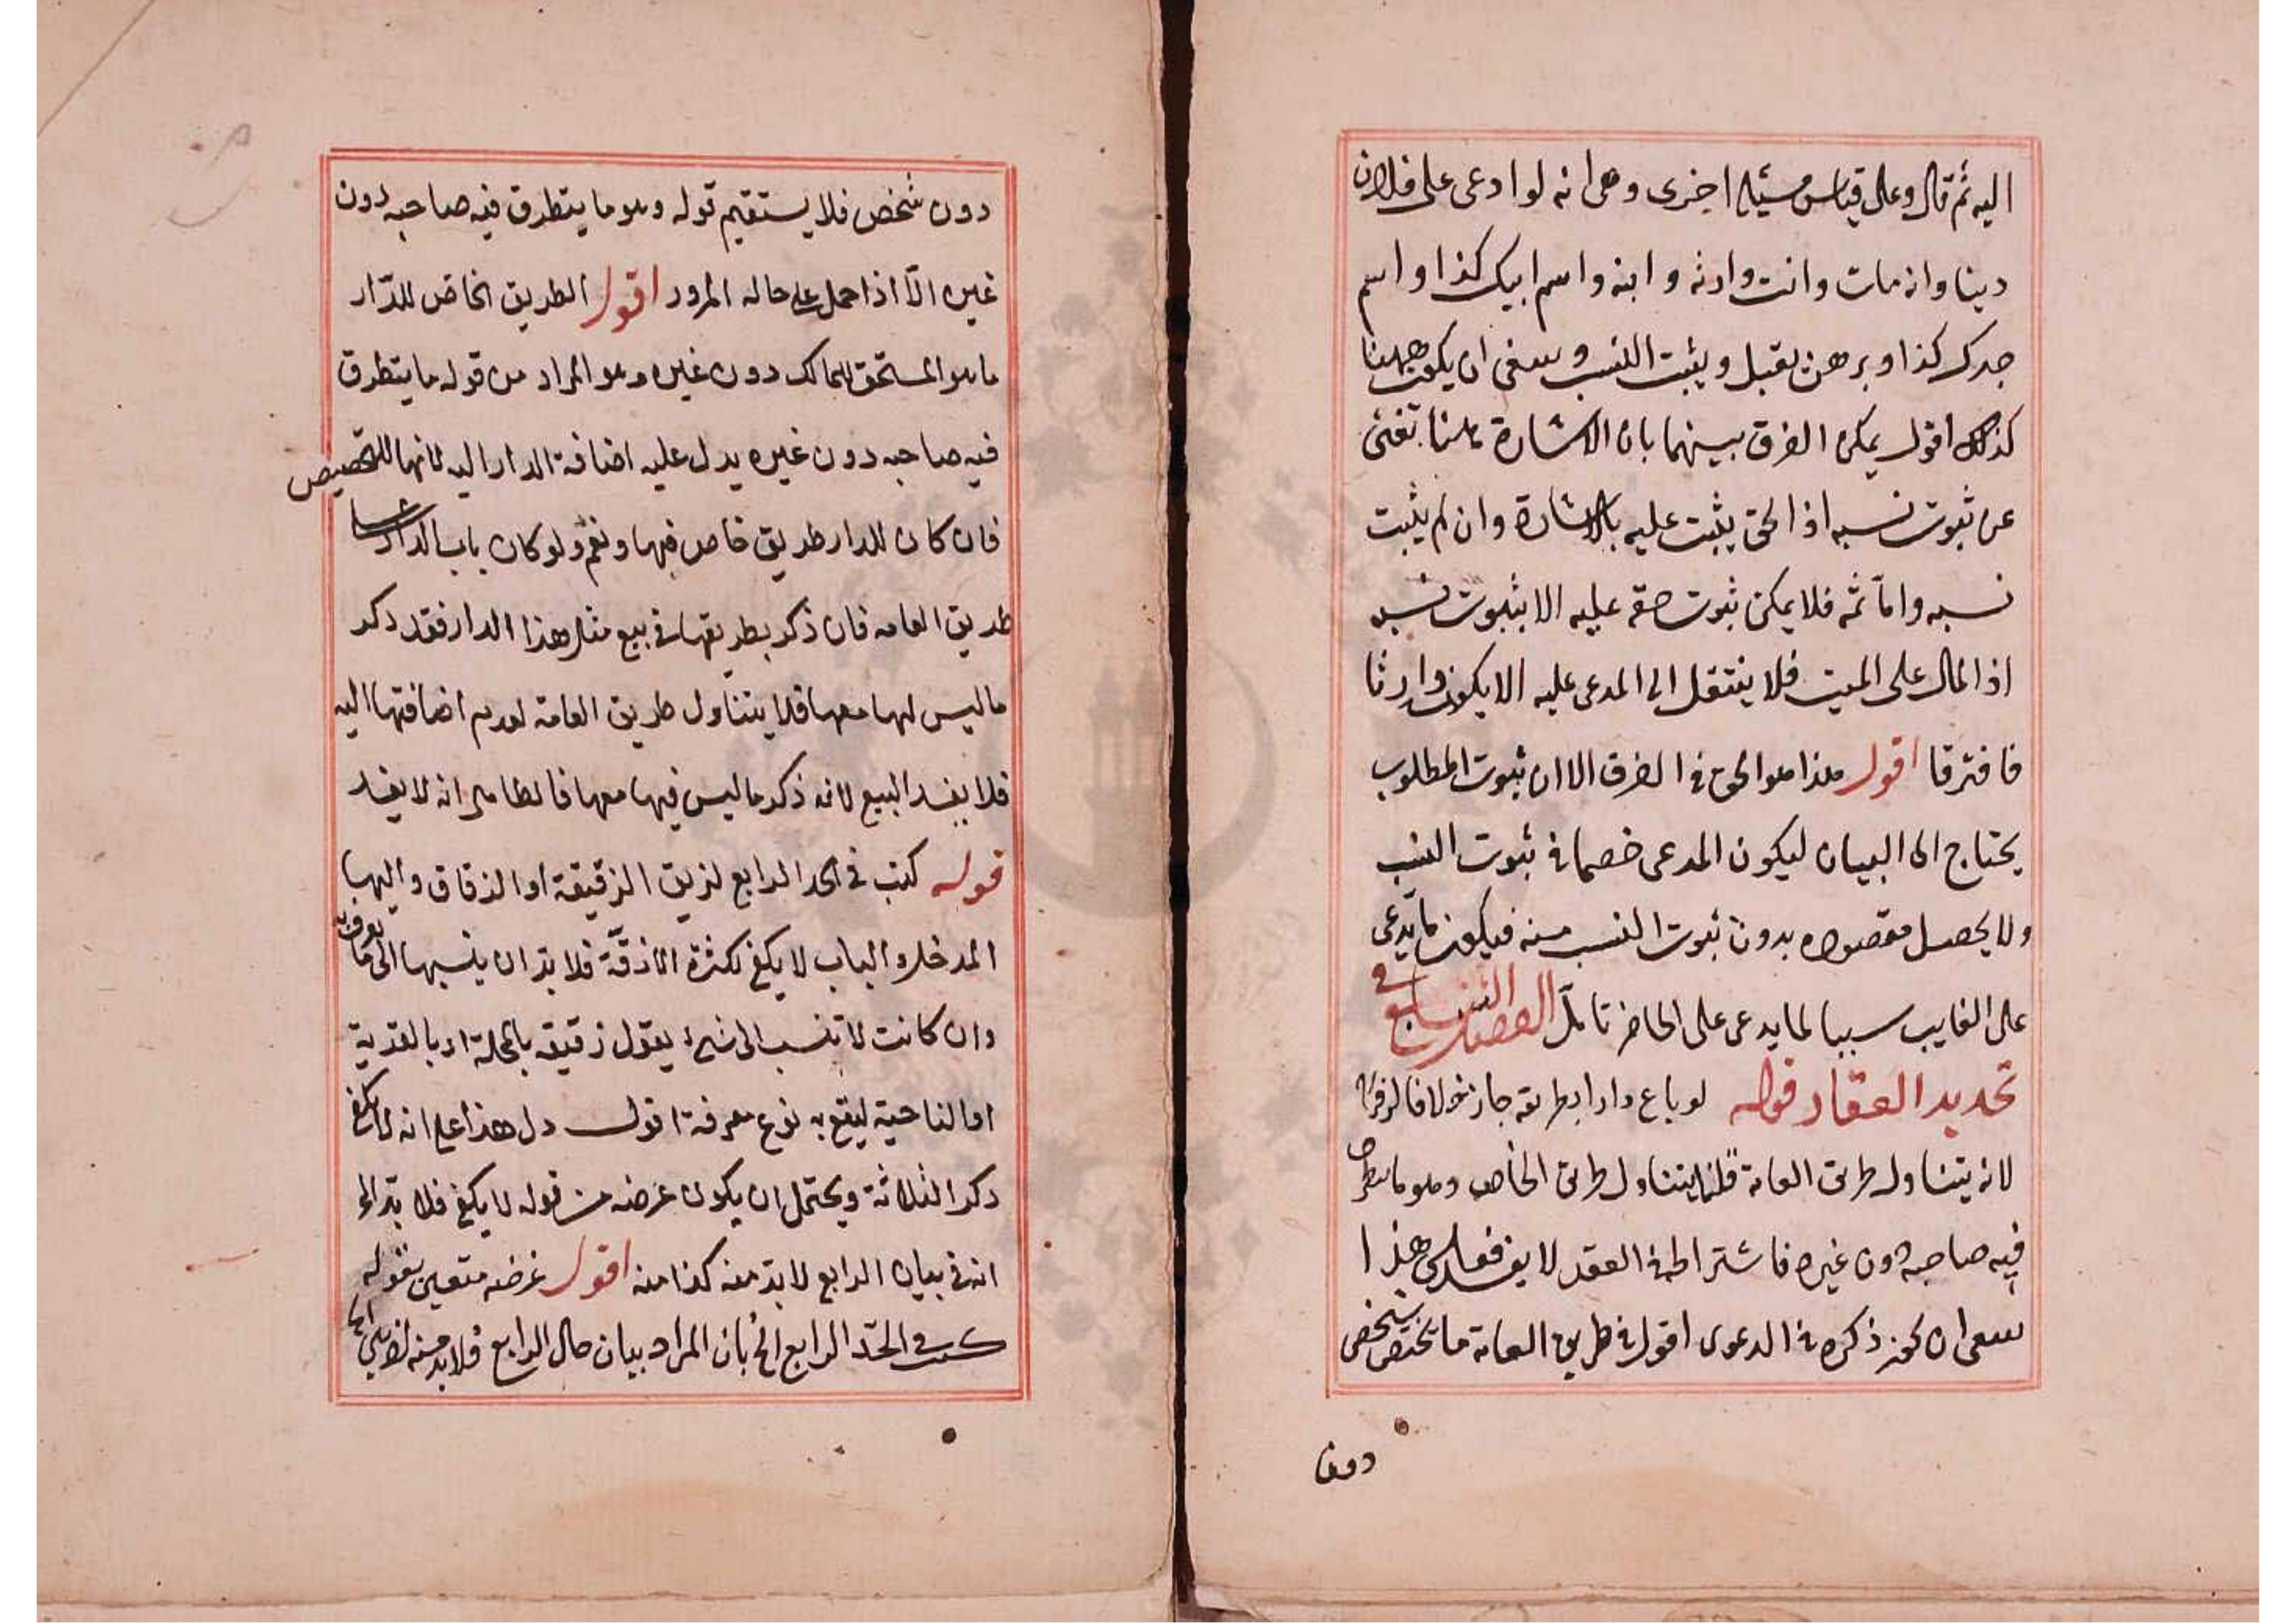 اليه ثم قال وعلى قياس مسئلة اخرى وهى انه لو ادعى على فلان
دينا وانه مات وانت وارثه وابنه واسم ابيك كذا واسم
جدك كذا وبرهن يقبل ويثبت النسب وينبغى ان يكون ههنا
كذلك اقول يمكن الفرق بينهما بان الاشارة هاهنا تغنى
عن ثبوت نسبه اذ الحق يثبت عليه بالاشارة وان لم يثبت
نسبه واما ثمه فلا يمكن ثبوت حقه عليه الا بثبوت نسبه
اذ المال على الميت فلا ينتقل الى المدعى عليه الا بكونه وارثا
فافترقا اقول هذا هو الحق فى الفرق الا ان ثبوت المطلوب
يحتاج الى البيان ليكون المدعى خصما فى ثبوت النسب
ولا يحصل مقصوده بدون ثبوت النسب منه فيكون ما يدعى
على الغايب سببا لما يدعى على الحاضر تامل الفصل السابع فى
تحديد العقار قوله لو باع دارا بطريقه جاز خولافا لزفر
لانه يتناول طريق العامة قلنا يتناول طريق الخاص وهو ما يتطرق
فيه صاحبه دون غيره فاشتراطه فى العقد لا يفسد فعلى هذا
ينبغى ان يجوز ذكره فى الدعوى اقول فى طريق العامة ما يختص بشخص
دون
دون شخص فلا يستقيم قوله وهو ما يتطرق فيه صاحبه دون
غيره الا اذا حمل على حاله المرور اقول الطريق الخاص للدار
ما هو المستحق للمالك دون غيره وهو المراد من قوله ما يتطرق
فيه صاحبه دون غيره يدل عليه اضافة الدار اليه لانها للتخصيص
فان كان للدار طريق خاص فيها ونعم ولو كان باب الدار
طريق العامه فان ذكر بطريقها فى بيع مثل هذا الدار فقد ذكر
ما ليس لها معها فلا يتناول طريق العامة لعدم اضافتها اليه
فلا يفسد البيع لانه ذكر ما ليس فيها معها فالظاهر انه لا يفسد
قوله كتب فى الحد الرابع لزيق الزقيقة او الزقاق واليها
المدخل والباب لا يكفى لكثرة الازقة فلا بد ان ينسبها الى ما يعرف به
وان كانت لا تنسب الى شىء يقول زقيقه بالمحلة او بالقرية
او الناحية ليقع به نوع معرفة اقول دل هذا على انه لا يكفى
ذكر الثلاثة ويحتمل ان يكون غرضه من قوله لا يكفى فلا بد الخ
انه فى بيان الرابع لا بد منه كذا منه اقول غرضه متعين بقوله
كتب فى الحد الرابع الخ بان المراد بيان حال الرابع فلا بد منه